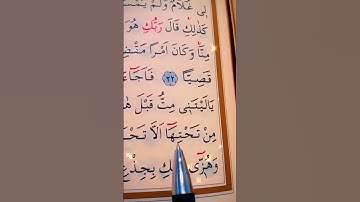 لٖى غُلَامٌ وَلَمْ يَمْسَ
كَذٰلِكِ قَالَ رَبُّكِ هُوَ
مِنَّا وَكَانَ اَمْرًا مَقْضِ
قَصِيًّا ﴿٢٢﴾ فَاَجَٓاءَ
يَالَيْتَنٖى مِتُّ قَبْلَ هٰ
مِنْ تَحْتِهَٓا اَلَّا تَحْزَ
وَهُزّٖٓى اِلَيْكِ بِجِذْعِ